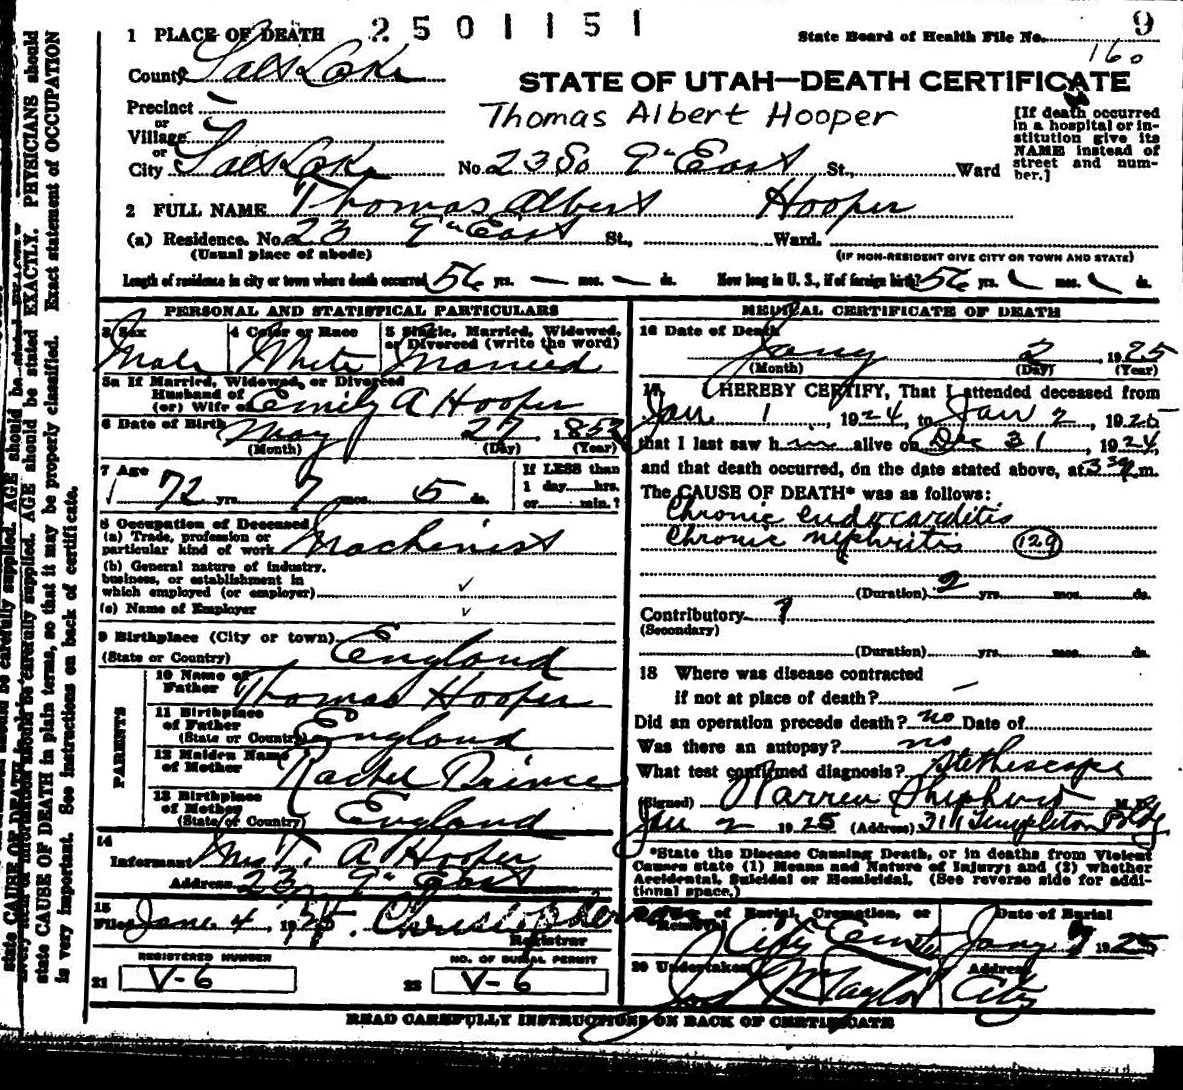 2501151
9
1 PLACE OF DEATH
State Board of Health File No.
160
County Salt Lake
STATE OF UTAH—DEATH CERTIFICATE
Precinct
Thomas Albert Hooper
or
Village
or
City Salt Lake No. 23 So 9th East St., Ward
[If death occurred
in a hospital or in-
stitution give its
NAME instead of
street and num-
ber.]
2 FULL NAME Thomas Albert Hooper
(a) Residence. No. 23 9th East St., Ward.
(Usual place of abode) (IF NON-RESIDENT GIVE CITY OR TOWN AND STATE)
Length of residence in city or town where death occurred 56 yrs. — mos. — ds. How long in U. S., if of foreign birth? 56 yrs. mos. ds.
PERSONAL AND STATISTICAL PARTICULARS
3 Sex 4 Color or Race 5 Single, Married, Widowed,
or Divorced (write the word)
Male White Married
5a If Married, Widowed, or Divorced
Husband of
(or) Wife of Emily A Hooper
6 Date of Birth May 27 1852
(Month) (Day) (Year)
7 Age If LESS than
72 yrs. 7 mos. 5 ds. 1 day hrs.
or min.?
8 Occupation of Deceased
(a) Trade, profession or
particular kind of work Machinist
(b) General nature of industry,
business, or establishment in
which employed (or employer)
(c) Name of Employer
9 Birthplace (City or town)
(State or Country) England
PARENTS
10 Name of
Father Thomas Hooper
11 Birthplace
of Father
(State or Country) England
12 Maiden Name
of Mother Rachel Prince
13 Birthplace
of Mother
(State or Country) England
14
Informant Mrs T. A Hooper
Address 23 9th East
15
Filed Jany. 4, 1925.
Registrar
REGISTERED NUMBER NO. OF BURIAL PERMIT
21 V-6 22 V-6
MEDICAL CERTIFICATE OF DEATH
16 Date of Death
Jany 2, 1925
(Month) (Day) (Year)
17. I HEREBY CERTIFY, That I attended deceased from
Jan. 1, 1924, to Jan 2, 1925
that I last saw him alive on Dec 31, 1924,
and that death occurred, on the date stated above, at m.
The CAUSE OF DEATH* was as follows:
Chronic endocarditis
Chronic nephritis 129
(Duration) 2 yrs. mos. ds.
Contributory ?
(Secondary)
(Duration) yrs. mos. ds.
18 Where was disease contracted
if not at place of death? —
Did an operation precede death? no Date of
Was there an autopsy? no
What test confirmed diagnosis? Stethescope
(Signed) Warren Shepherd M.D.
Jan 2 1925 (Address) 311 Templeton Bldg.
*State the Disease Causing Death, or in deaths from Violent
Causes state (1) Means and Nature of Injury; and (2) whether
Accidental, Suicidal or Homicidal. (See reverse side for addi-
tional space.)
19 Place of Burial, Cremation, or Date of Burial
Removal
City Jany. 1925
20 Undertaker Address
Jos Wm Taylor City
READ CAREFULLY INSTRUCTIONS ON BACK OF CERTIFICATE
AGE should be stated EXACTLY. PHYSICIANS should
state CAUSE OF DEATH in plain terms, so that it may be properly classified. Exact statement of OCCUPATION
is very important. See instructions on back of certificate.